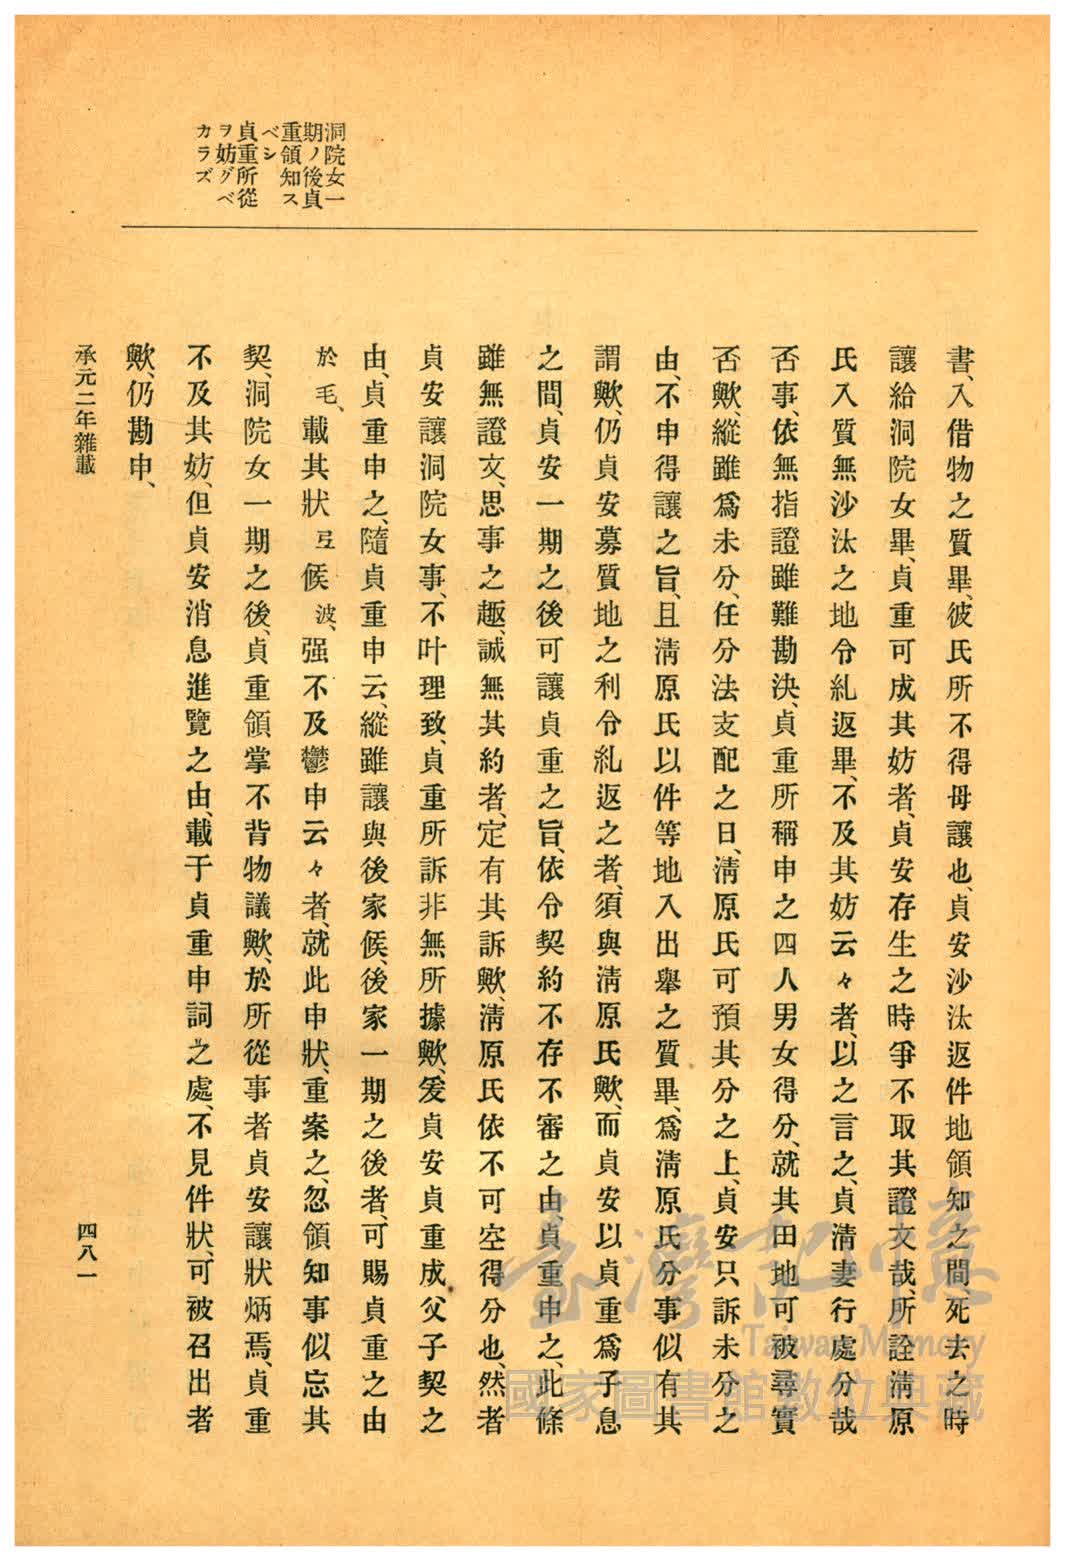 洞院女一
期ノ後貞
重領知ス
ベシ
貞重所從
ヲ妨グベ
カラズ
書、入借物之質畢、彼氏所不得母讓也、貞安沙汰返件地領知之間死去之時
讓給洞院女畢、貞重可成其妨者、貞安存生之時爭不取其證文哉、所詮淸原
氏入質無沙汰之地令糺返畢、不及其妨云々者、以之言之、貞淸妻行處分哉
否事、依無指證雖難勘決、貞重所稱申之四人男女得分、就其田地可被尋實
否歟、縱雖爲未分、任分法支配之日、淸原氏可預其分之上、貞安只訴未分之
由、不申得讓之旨、且淸原氏以件等地入出擧之質畢、爲淸原氏分事似有其
謂歟、仍貞安募質地之利令糺返之者、須與淸原氏歟、而貞安以貞重爲子息
之間、貞安一期之後可讓貞重之旨、依令契約不存不審之由、貞重申之、此條
雖無證文、思事之趣、誠無其約者、定有其訴歟、淸原氏依不可空得分也、然者
貞安讓洞院女事、不叶理致、貞重所訴非無所據歟、爰貞安貞重成父子契之
由、貞重申之、隨貞重申云、縱雖讓與後家候、後家一期之後者、可賜貞重之由
於毛、載其狀弖候波、强不及鬱申云々者、就此申狀、重案之、忽領知事似忘其
契、洞院女一期之後、貞重領掌不背物議歟、於所從事者貞安讓狀炳焉、貞重
不及其妨、但貞安消息進覽之由、載于貞重申詞之處、不見件狀、可被召出者
歟、仍勘申、
承元二年雜載
四八一
臺灣記憶
Taiwan Memory
國家圖書館數位典藏